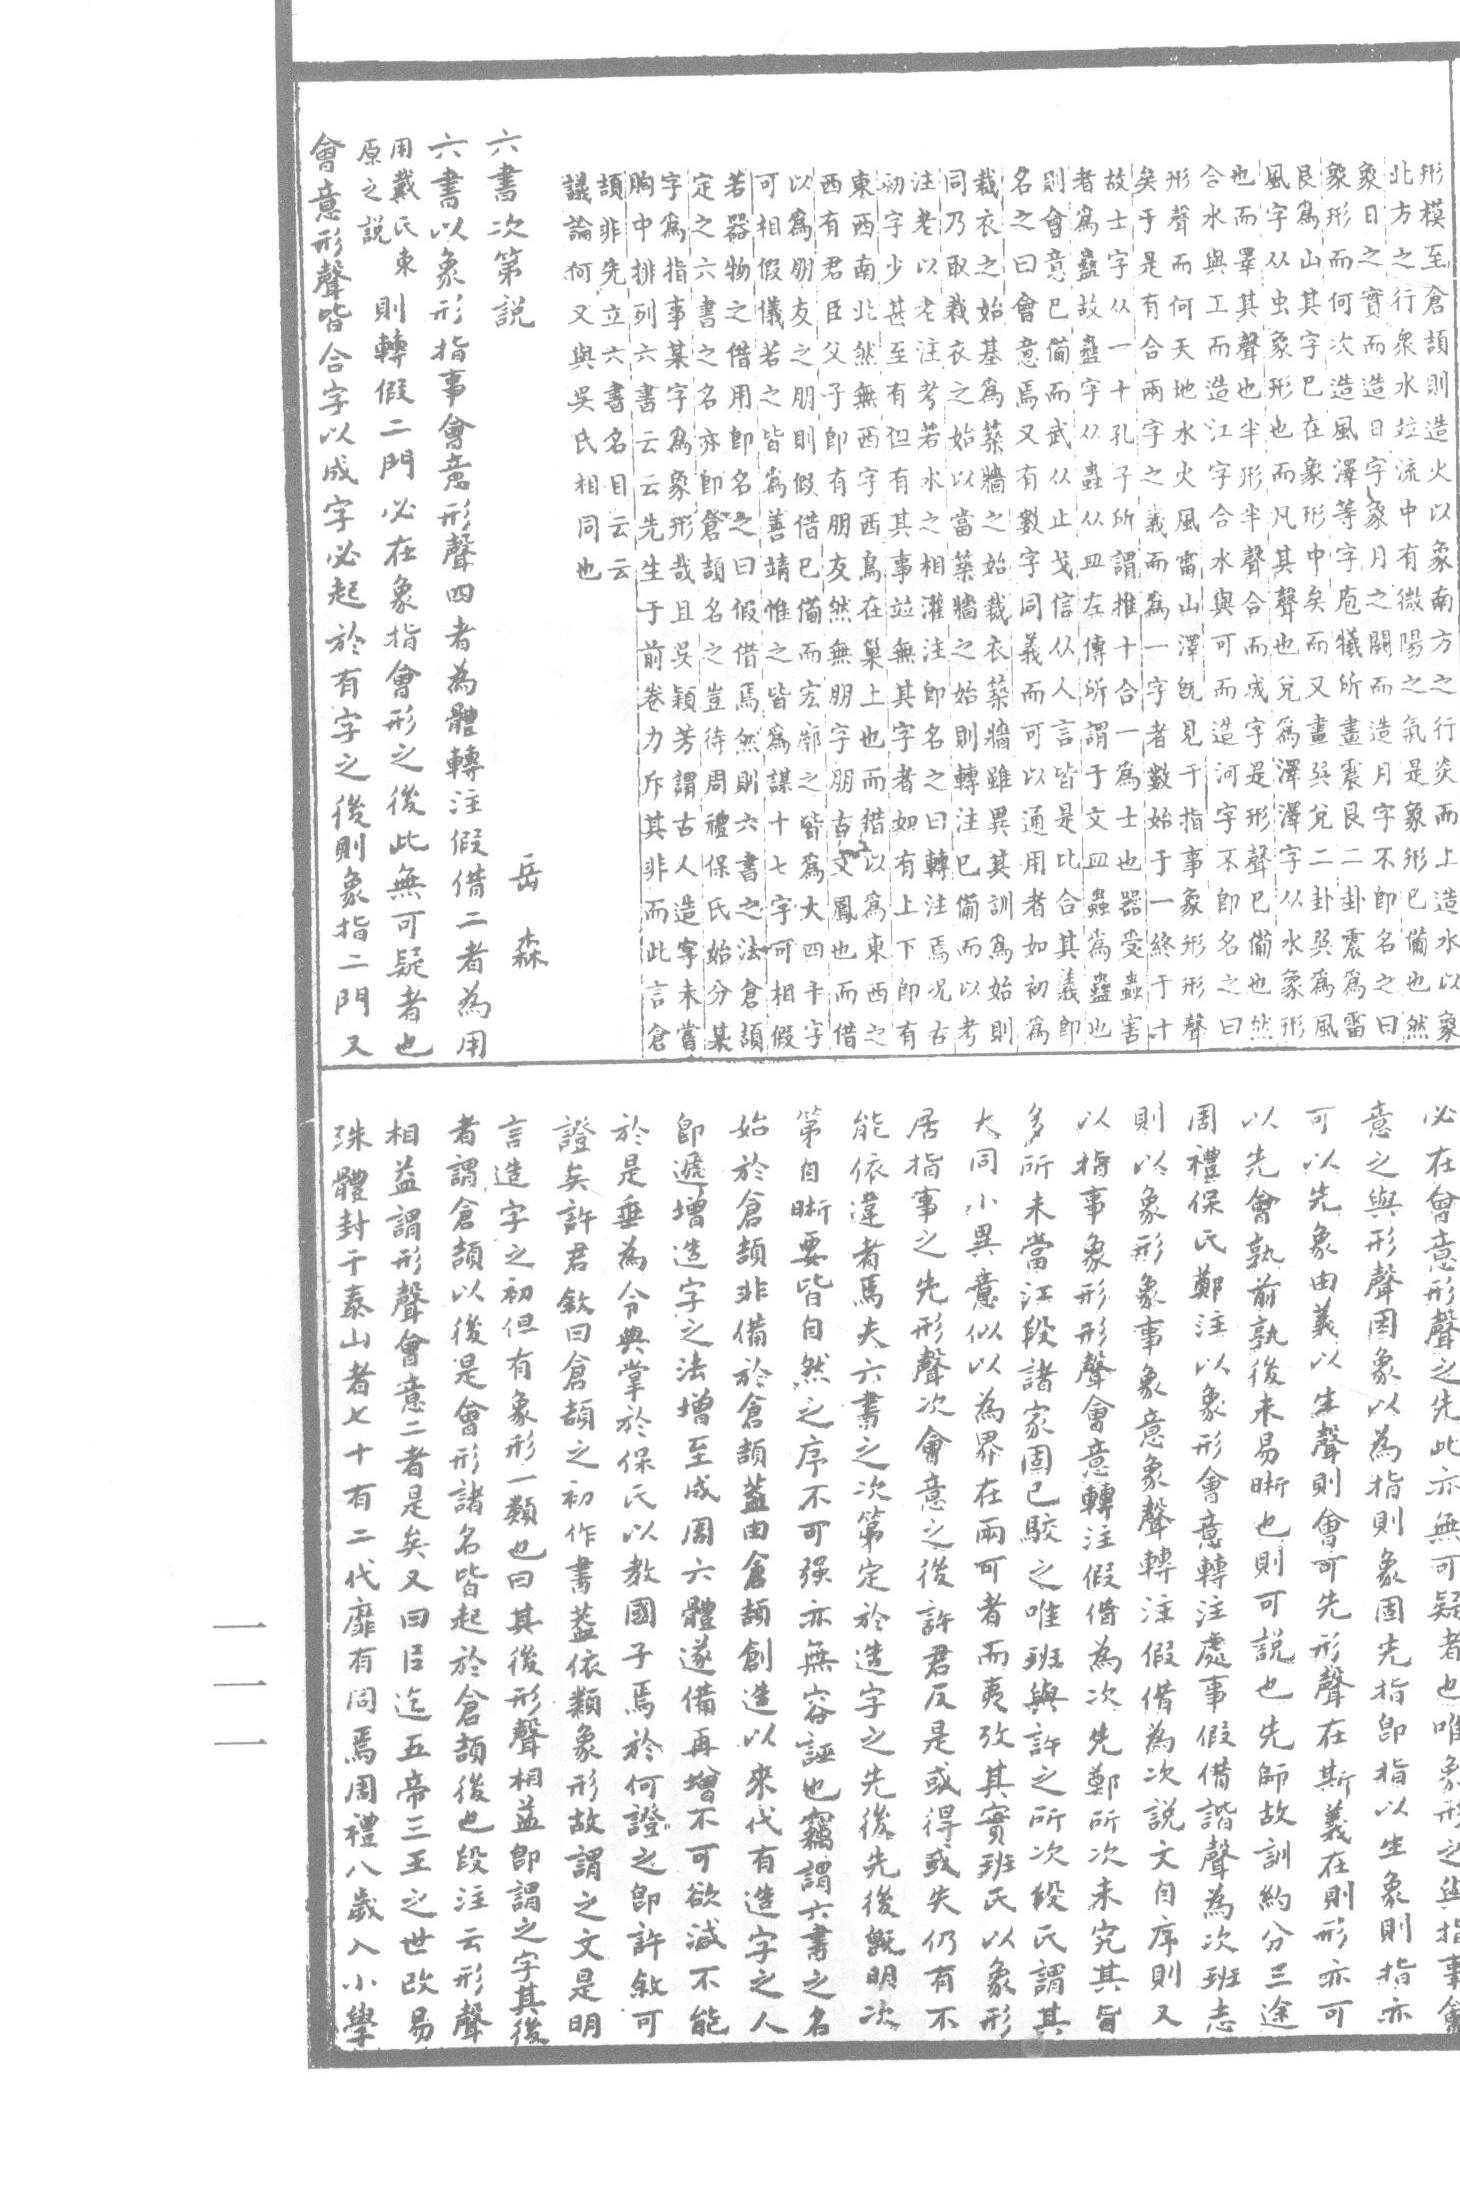 形模至倉頡則造火以象南方之行炎而上造水以象
北方之行衆水竝流中有微陽之氣是象形已備也然
象日之實而造日字象月之闕而造月字不即名之曰
象形而何次造風澤等字庖犧所畫震艮二卦震爲雷
艮爲山其字已在象形中矣而又畫巽兌二卦巽爲風
風字从虫象形也而凡其聲也兌爲澤澤字从水象形
也而睪其聲也半形半聲合而成字是形聲已備也然
合水與工而造江字合水與可而造河字不即名之曰
形聲而何天地水火風雷山澤既見于指事象形形聲
矣于是有合兩字之義而爲一字者數始于一終于十
故士字从一十孔子所謂推十合一爲士也器受蟲害
者爲蠱故蠱字从蟲从皿左傳所謂于文皿蟲爲蠱也
則會意已備而武从止戈信从人言皆是比合其義即
名之曰會意焉又有數字同義而可以通用者如初爲
裁衣之始基爲築牆之始裁衣築牆雖異其訓爲始則
同乃取裁衣之始以當築牆之始則轉注已備而以考
注老以老注考若水之相灌注即名之曰轉注焉況古
初字少甚至有但有其事竝無其字者如有上下即有
東西南北然無西字西鳥在巢上也而借以爲東西之
西有君臣父子即有朋友然無朋字朋古文鳳也而借
以爲朋友之朋則假借已備而宏廓之皆爲大四十字
可相假儀若之皆爲善靖惟之皆爲謀十七字可相假
若器物之借用即名之曰假借焉然則六書之法倉頡
定之六書之名亦即倉頡名之豈待周禮保氏始分某
字爲指事某字爲象形哉且吳穎芳謂古人造字未嘗
胸中排列六書云云先生于前卷力斥其非而此言倉
頡非先立六書名目云云
議論何又與吳氏相同也
六書次第説
岳森
六書以象形指事會意形聲四者為體轉注假借二者為用
用戴氏東
原之説
則轉假二門必在象指會形之後此無可疑者也
會意形聲皆合字以成字必起於有字之後則象指二門又
必在會意形聲之先此亦無可疑者也唯象形之與指事會
意之與形聲因象以為指則象固先指即指以生象則指亦
可以先象由義以生聲則會可先形聲在斯義在則形亦可
以先會孰前孰後未易晣也則可説也先師故訓約分三途
周禮保氏鄭注以象形會意轉注處事假借諧聲為次班志
則以象形象事象意象聲轉注假借為次説文自序則又
以指事象形形聲會意轉注假借為次先鄭所次未究其旨
多所未當江段諸家固已駮之唯班與許之所次段氏謂其
大同小異意似以為界在兩可者而夷攷其實班氏以象形
居指事之先形聲次會意之後許君反是或得或失仍有不
能依違者焉夫六書之次第定於造字之先後先後旣明次
第自晣要皆自然之序不可强亦無容誣也竊謂六書之名
始於倉頡非備於倉頡葢由倉頡創造以來代有造字之人
卽遞增造字之法增至成周六體遂備再增不可欲減不能
於是垂為令典掌於保氏以教國子焉於何證之卽許敘可
證矣許君敘曰倉頡之初作書葢依類象形故謂之文是明
言造字之初但有象形一類也曰其後形聲相益卽謂之字其後
者謂倉頡以後是會形諸名皆起於倉頡後也段注云形聲
相益謂形聲會意二者是矣又曰㠯迄五帝三王之世改易
殊體封于泰山者七十有二代靡有同焉周禮八歲入小學
一一一